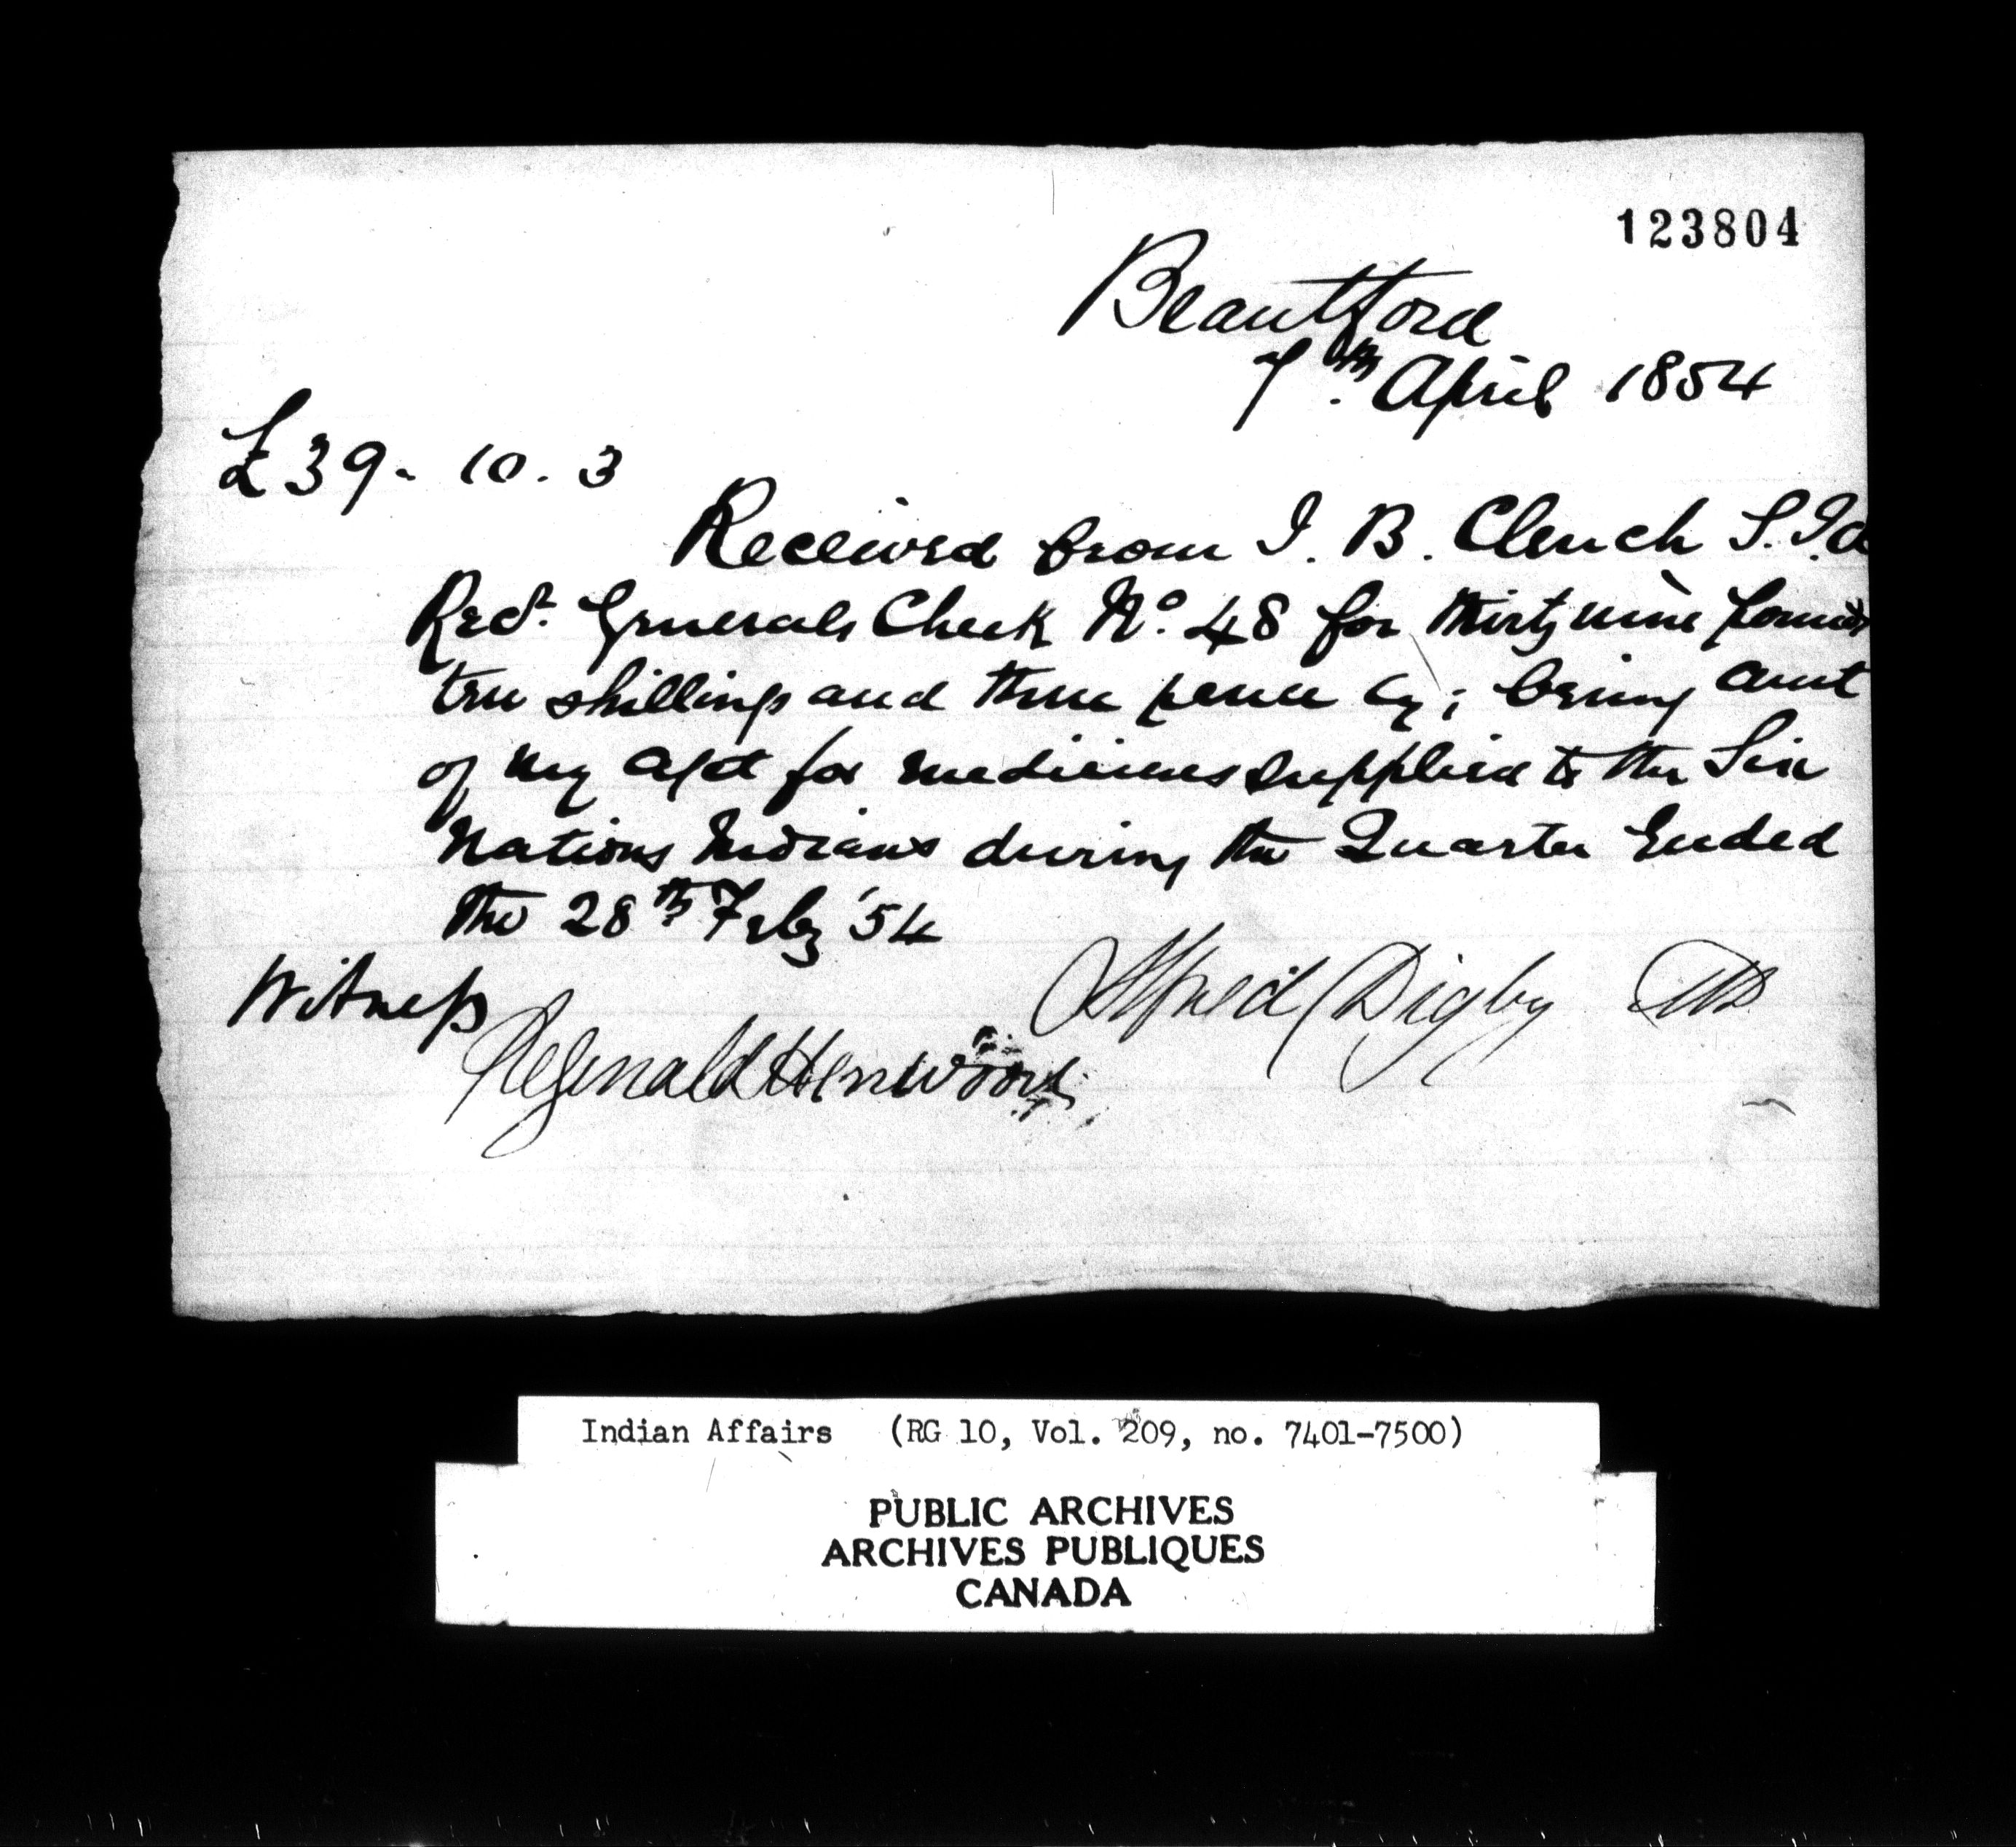 123804
Brantford
7th. April 1854
£39. 10. 3
Received from J. B. Clench S. I. A
Recr. Generals Check No. 48 for thirty nine pounds
ten shillings and three pence Cy; being amt
of my a/ct for medicines supplied to the Six
Nations Indians during the Quarter Ended
the 28th Feby '54
Witness
Alfred Digby MD
Reginald Henwood
Indian Affairs (RG 10, Vol. 209, no. 7401-7500)
PUBLIC ARCHIVES
ARCHIVES PUBLIQUES
CANADA